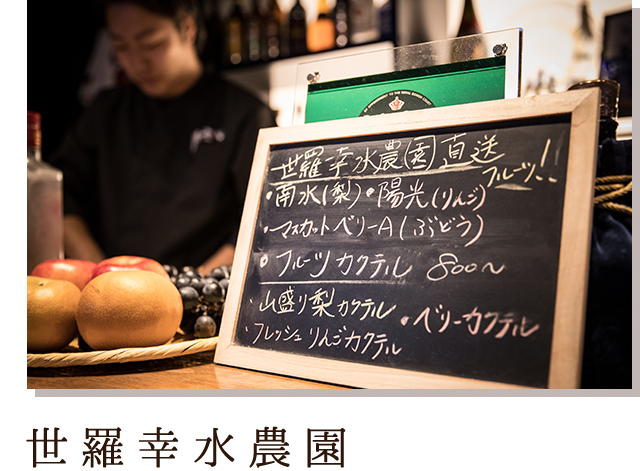 世羅幸水農園直送
フルーツ!!
・南水(梨)・陽光(りんご)
・マスカットベリーA(ぶどう)
・フルーツカクテル 800〜
・山盛り梨カクテル
・ベリーカクテル
・フレッシュりんごカクテル
世羅幸水農園